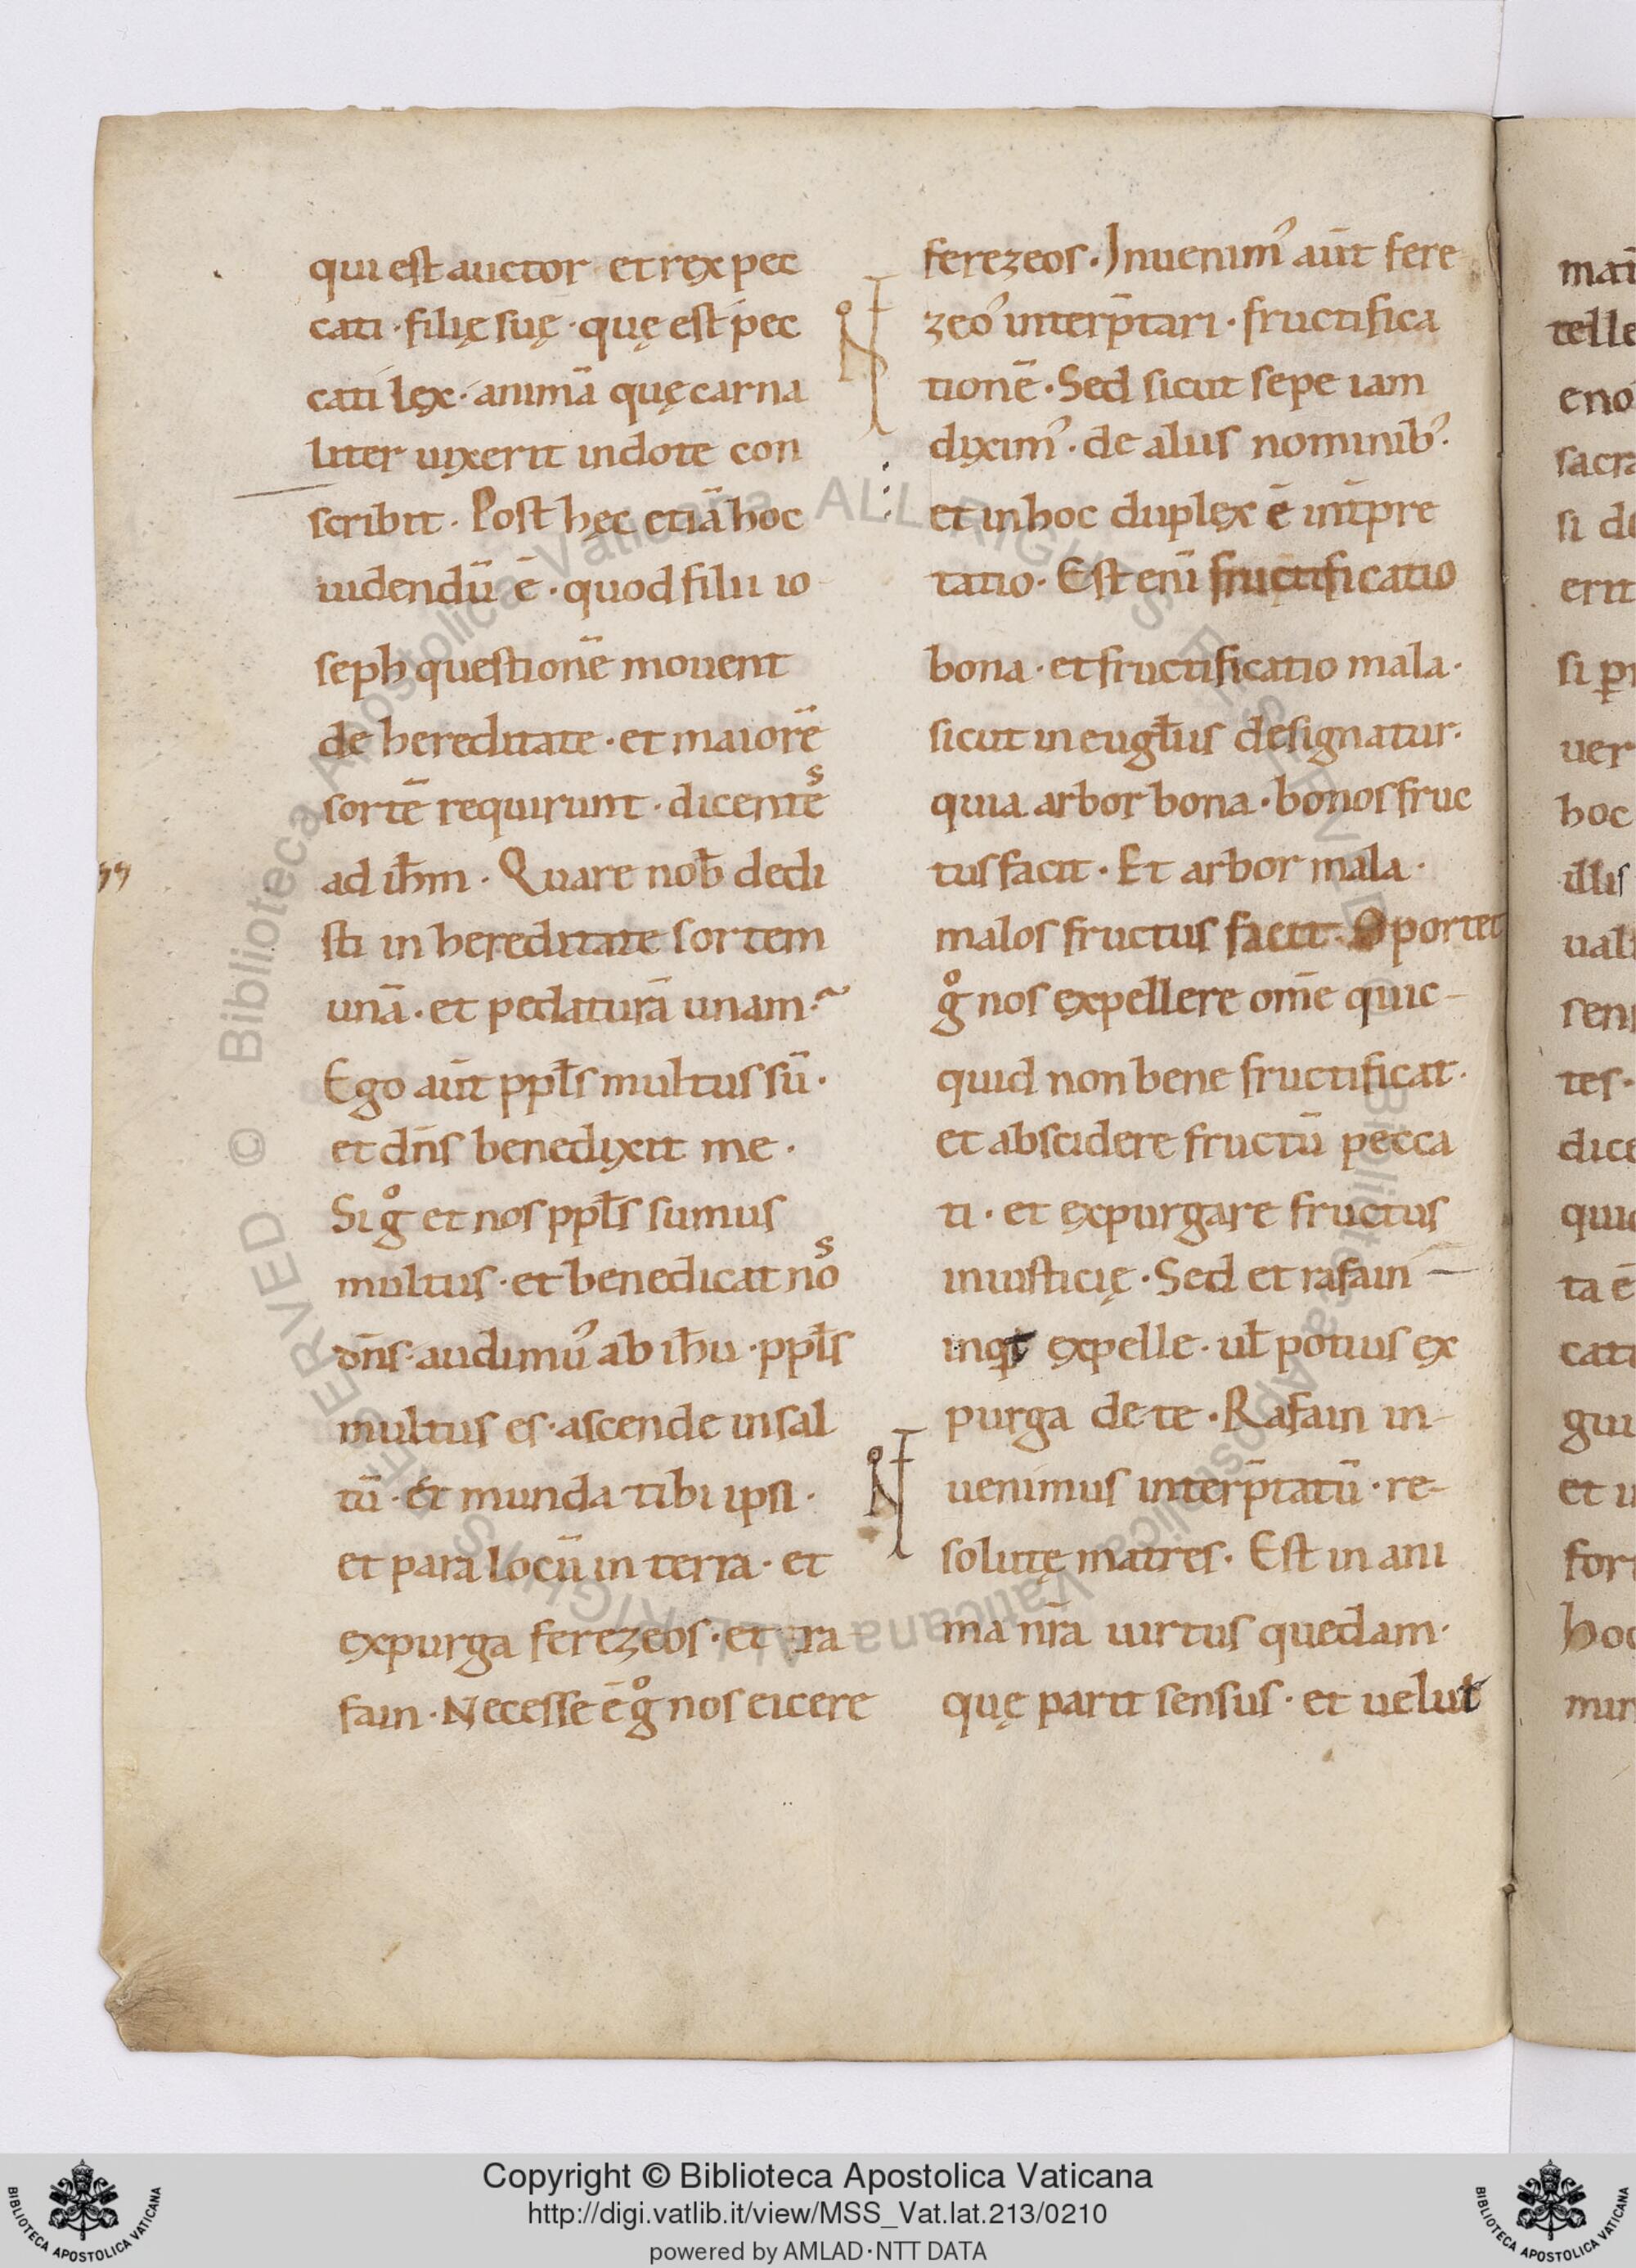 qui est auctor et rex pec
cati · filię suę · quę est pec
cati lex · animā quę carna
liter uixerit in dote con
scribit · Post hęc etiā hoc
uidendū ē · quod filii io
seph questionē mouent
de hereditate · et maiorē
sortē requirunt · dicentes
ad ih̄m · Quare nob̄ dedi
sti in hereditate sortem
unā · et pedaturā unam ·~
Ego aūt ppl̄s multus sū ·
et dn̄s benedixit me ·
Si gͦ et nos ppl̄s sumus
multus · et benedicat nos
dn̄s · audimuʼ ab ih̄u · ppl̄s
multus es · ascende in sal
tū · et munda tibi ipsi ·
et para locū in terra · et
expurga ferezeos · et ra
fain · Necesse ē gͦ nos eicere
ferezeos · Inuenimʼ aūt fere
zeoʼ interp̄tari · fructifica
tionē · Sed sicut sepe iam
diximʼ · de aliis nominibʼ ·
et in hoc duplex ē int̄pre
tatio · Est eni̅ fructificatio
bona · et fructificatio mala ·
sicut in eugl̄iis designatur ·
quia arbor bona · bonos fruc
tus facit · Et arbor mala ·
malos fructus facit · Oportet
gͦ nos expellere om̄e quic-
quid non bene fructificat ·
et abscidere fructū pecca
ti · et expurgare fructus
iniusticię · Sed et rafain
inqt expelle · ul̄ potius ex
purga de te · Rafain in-
uenimus interp̄tatū · re-
solutę matres · Est in ani
ma nr̄a uirtus quedam ·
quę parit sensus · et uelut
Copyright © Biblioteca Apostolica Vaticana
http://digi.vatlib.it/view/MSS_Vat.lat.213/0210
powered by AMLAD·NTT DATA
BIBLIOTECA APOSTOLICA VATICANA
BIBLIOTECA APOSTOLICA VATICANA